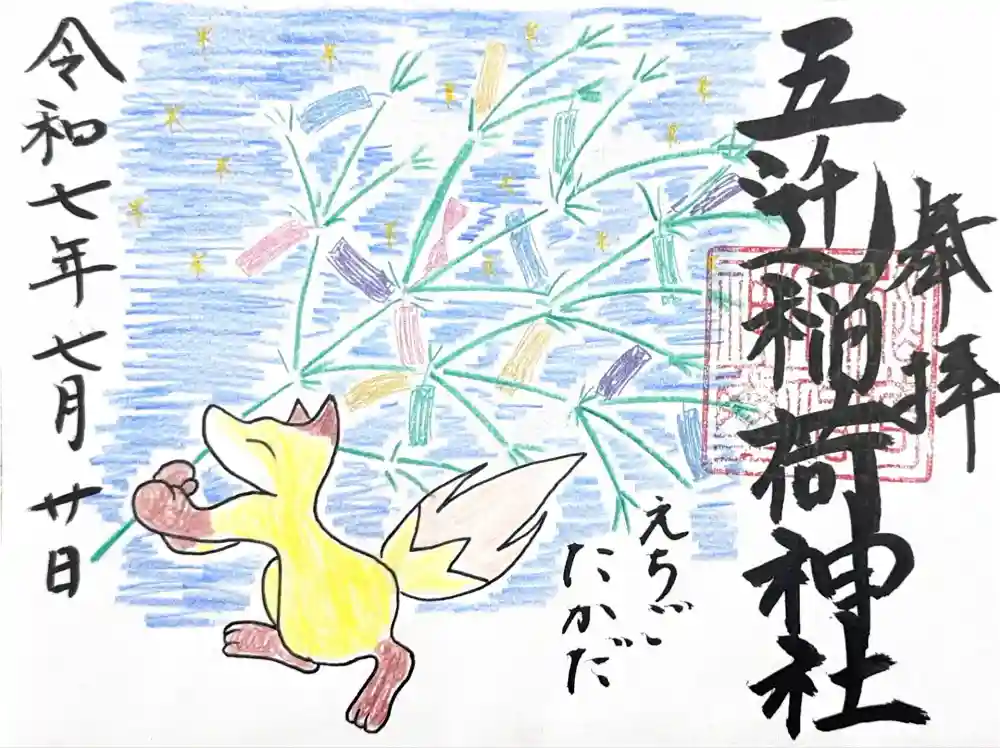 奉拝
五汁稲荷神社
えちご
たかだ
令和七年七月廿日